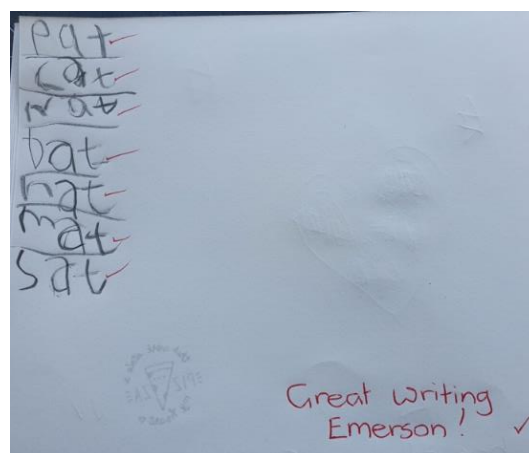 pat
cat
rat
bat
hat
mat
sat
Great writing
Emerson!